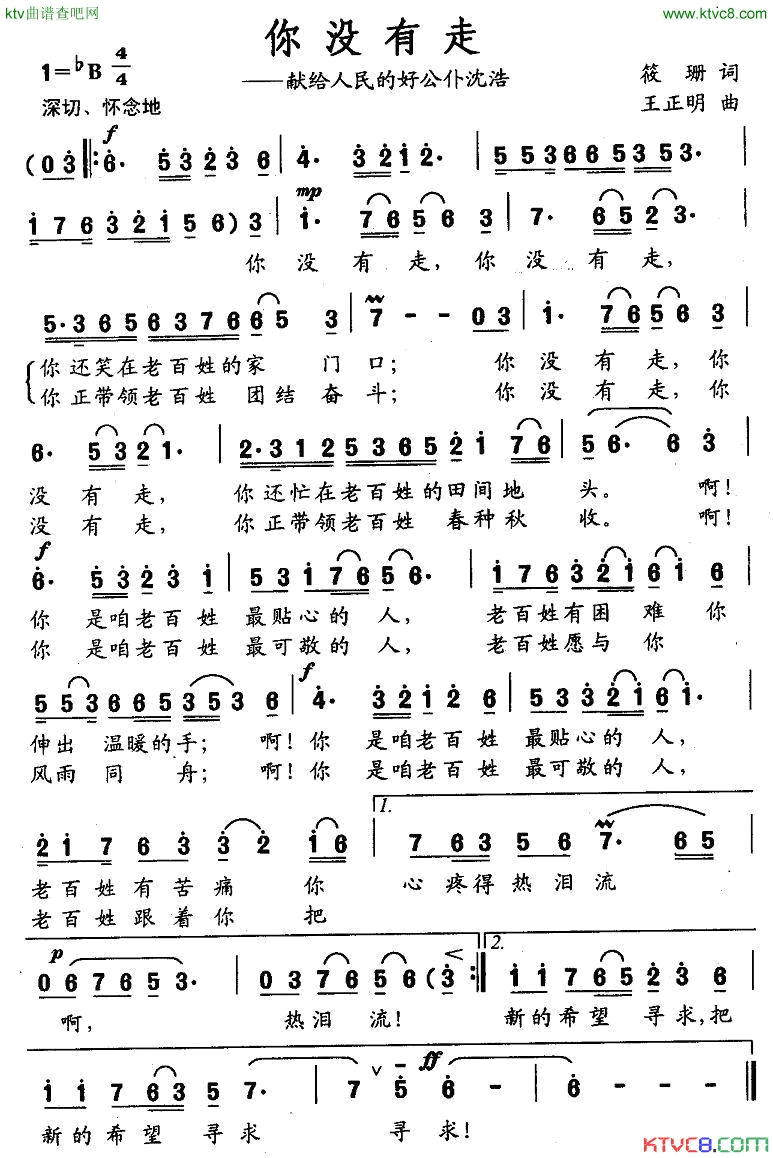 ktv曲谱查吧网
www.ktvc8.com
你没有走
——献给人民的好公仆沈浩
1=♭B 4/4
深切、怀念地
筱珊 词
王正明 曲
f
(0 3 6· 5 3 2 3 6 4· 3 2 1 2· 5 5 3 6 6 5 3 5 3·
mp
1 7 6 3 2 1 5 6) 3 1· 7 6 5 6 3 7· 6 5 2 3·
你没有走,你没有走,
5·3 6 5 6 3 7 6 6 5 3 7 - - 0 3 1· 7 6 5 6 3
你还笑在老百姓的家门口;你没有走,你
你正带领老百姓团结奋斗;你没有走,你
6· 5 3 2 1· 2·3 1 2 5 3 6 5 2 1 7 6 5 6· 6 3
没有走,你还忙在老百姓的田间地头。啊!
没有走,你正带领老百姓春种秋收。啊!
f
6· 5 3 2 3 1 5 3 1 7 6 5 6· 1 7 6 3 2 1 6 1 6
你是咱老百姓最贴心的人,老百姓有困难你
你是咱老百姓最可敬的人,老百姓愿与你
f
5 5 3 6 6 5 3 5 3 6 4· 3 2 1 2 5 5 3 3 2 1 6 1·
伸出温暖的手;啊!你是咱老百姓最贴心的人,
风雨同舟;啊!你是咱老百姓最可敬的人,
1.
2 1 7 6 3 3 2 1 6 7 6 3 5 6 7· 6 5
老百姓有苦痛你心疼得热泪流
老百姓跟着你把
p < 2.
0 6 7 6 5 3· 0 3 7 6 5 6 (3 1 1 7 6 5 2 3 6
啊,热泪流!新的希望寻求,把
ff
1 1 7 6 3 5 7· 7 5 6 - 6 - - -
新的希望寻求寻求!
KTVC8.com